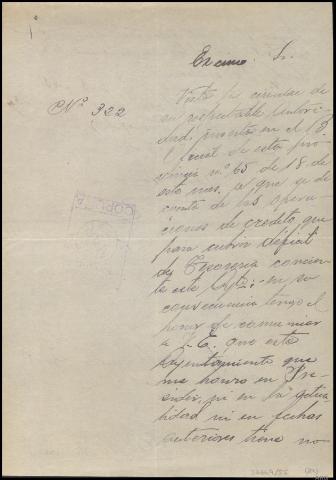 Excmo. Sr.
Nº 322
Vista la circular de
su respetable autori-
dad, inserta en el B.
Oficial de esta pro-
vincia nº 65 de 18 de
este mes, a que se de
cuenta de las opera-
ciones de credito que
para cubrir déficit
de Tesoreria concier-
te este Ayto; en su
consecuencia tengo el
honor de comunicar
a V.E. que este
Ayuntamiento que
me honro en Pre-
sidir, ni en la actua-
lidad ni en fechas
anteriores tiene no-
COPIA